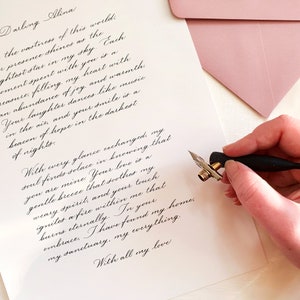 Darling Alina
the vastness of this world,
presence shines as the
brightest star in my sky. Each
moment spent with you is a
treasure, filling my heart with
an abundance of joy and warmth.
Your laughter dances like music
in the air, and your smile is a
beacon of hope in the darkest
of nights.
With every glance exchanged, my
soul finds solace in knowing that
you are mine. Your love is a
gentle breeze that soothes my
weary spirit, and your touch
ignites a fire within me that
burns eternally. In your
embrace, I have found my home,
my sanctuary, my everything.
With all my love